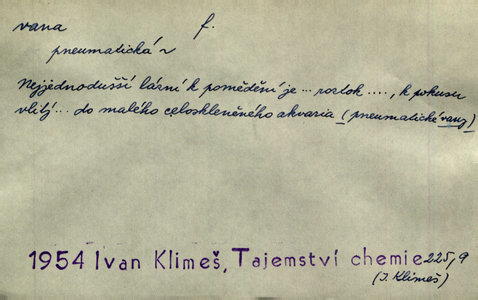 vana f.
pneumatická ~
Nejjednodušší lázní k pomědění je ... roztok ...., k pokusu
vlitý ... do malého celoskleněného akvaria (pneumatické vany)
1954 Ivan Klimeš, Tajemství chemie 225,9
(I. Klimeš)